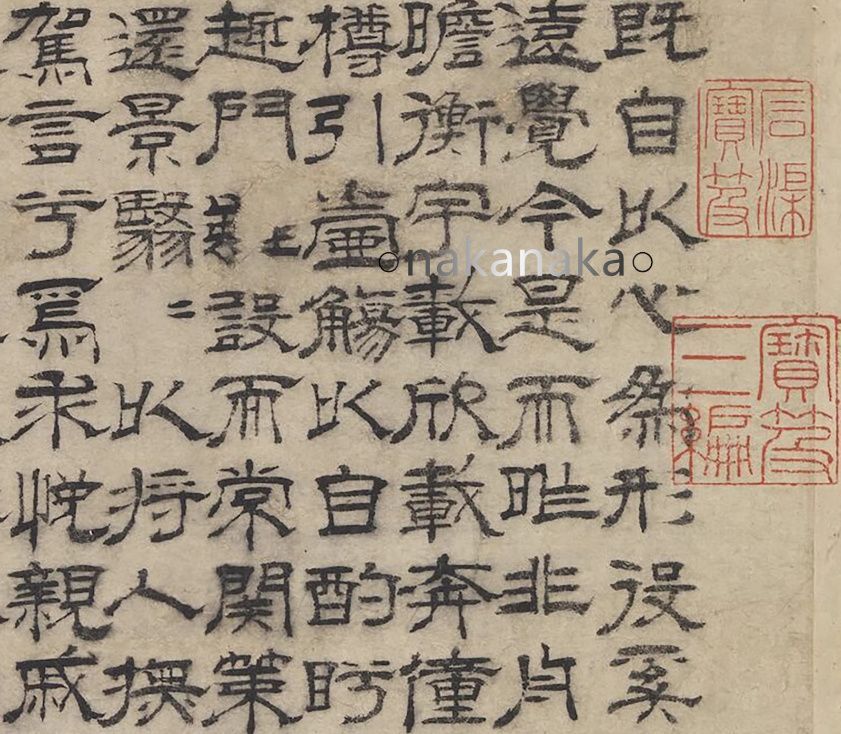 既自以心形役奚
遠覺今是而昨非舟
瞻衡宇載欣載奔僮
樽引壺觴以自酌眄
趣門設而常關策
還景翳〻以將入撫
駕言兮焉求悅親戚
石渠
寶笈
寶笈
三編
○nakanaka○